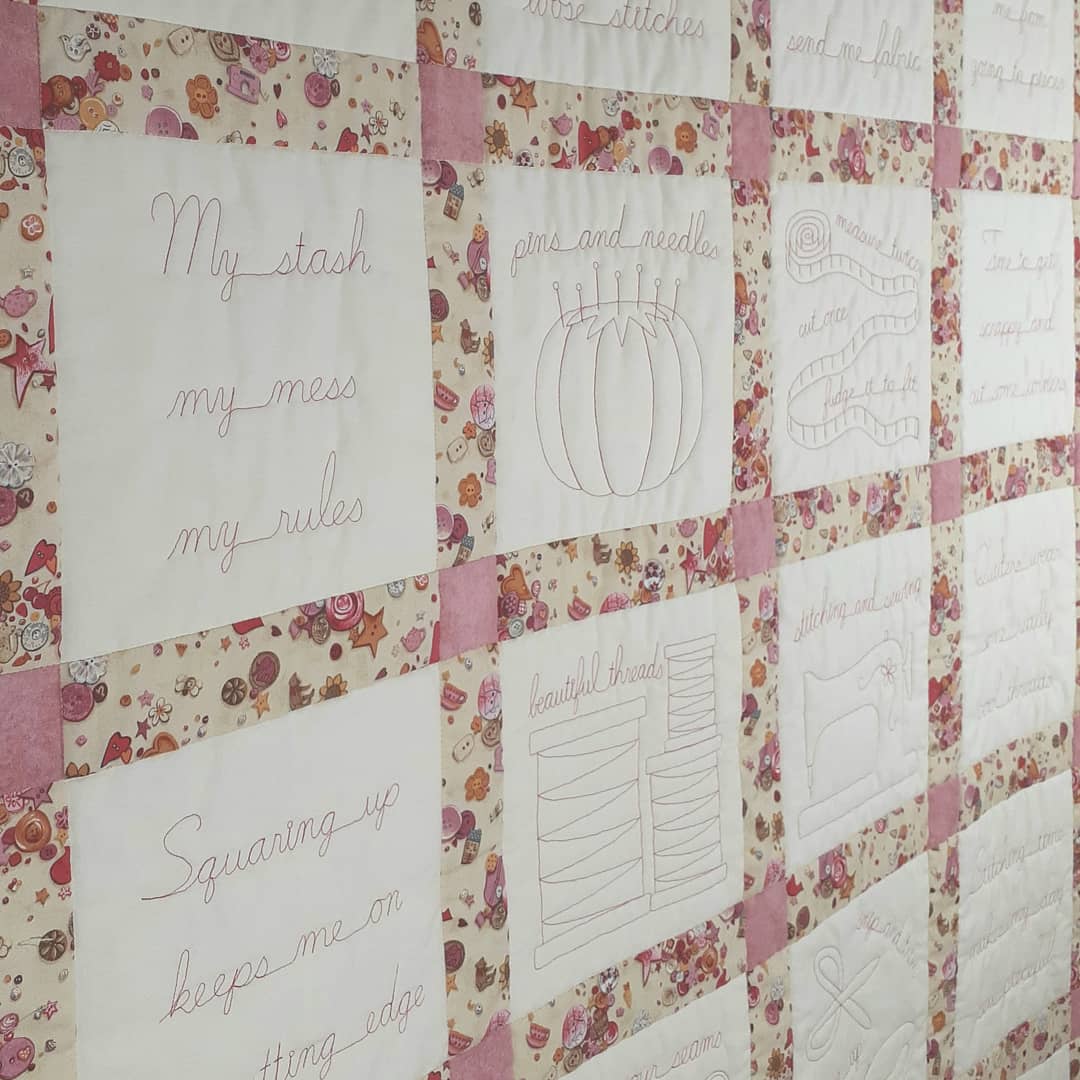 those stitches
send me fabric
me from
going to pieces
My stash
my mess
my rules
pins and needles
measure twice
cut once
fudge it to fit
Time to get
scrappy and
cut some corners
beautiful threads
stitching and sewing
Quilters wear
con threads
Squaring up
keeps me on
tting edge
snip and
Stitching time
makes my day
our seams